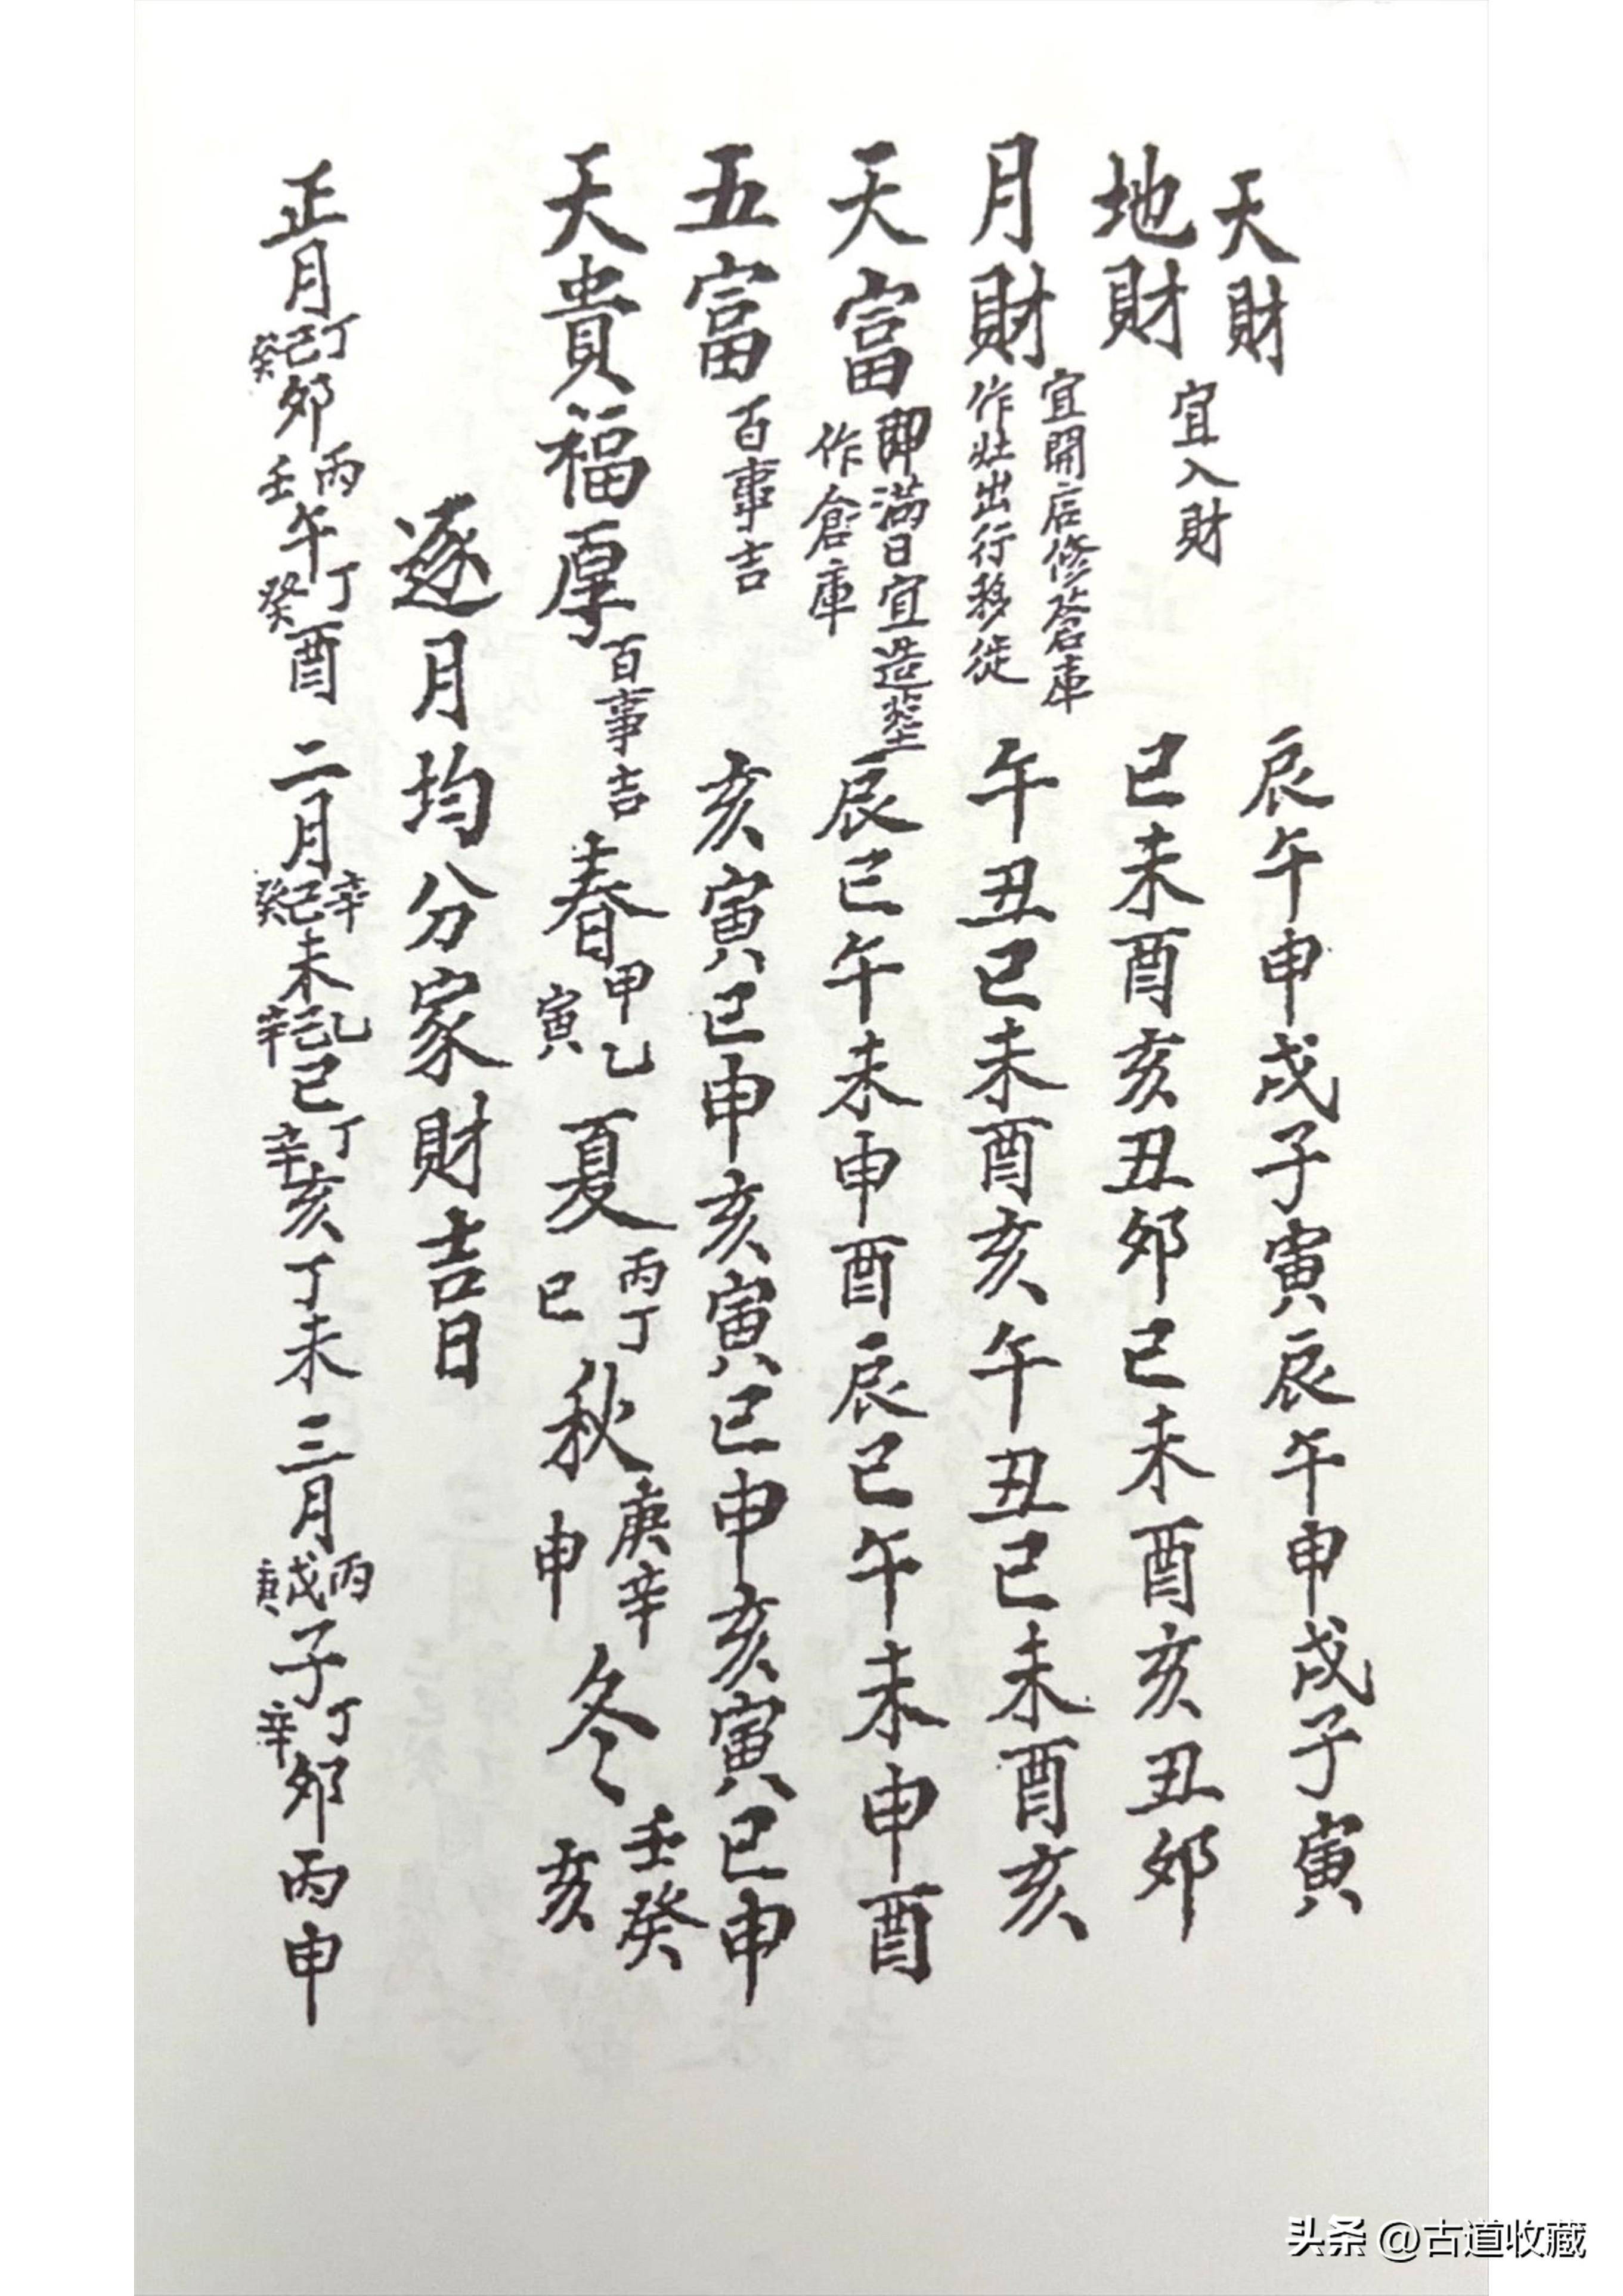 天財 辰午申戌子寅辰午申戌子寅
宜入財
地財 巳未酉亥丑卯巳未酉亥丑卯
月財 宜開店修蒼庫 作灶出行移徙 午丑巳未酉亥午丑巳未酉亥
天富 即滿日宜造塟 作倉庫 辰巳午未申酉辰巳午未申酉
五富 百事吉 亥寅巳申亥寅巳申亥寅巳申
天貴福厚 百事吉 春 甲乙寅 夏 丙丁巳 秋 庚辛申 冬 壬癸亥
逐月均分家財吉日
正月 丁己癸卯 丙壬午 丁癸酉 二月 辛己癸未 乙己辛巳 丁辛亥 丁未 三月 丙戊庚子 丁辛卯 丙申
头条 @古道收藏